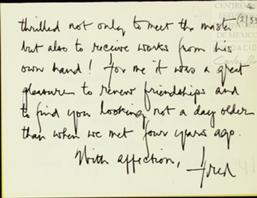 thrilled not only to meet the master
but also to receive works from his
own hand! For me it was a great
pleasure to renew friendships and
to find you looking not a day older
than when we met four years ago.
With affection, Fred